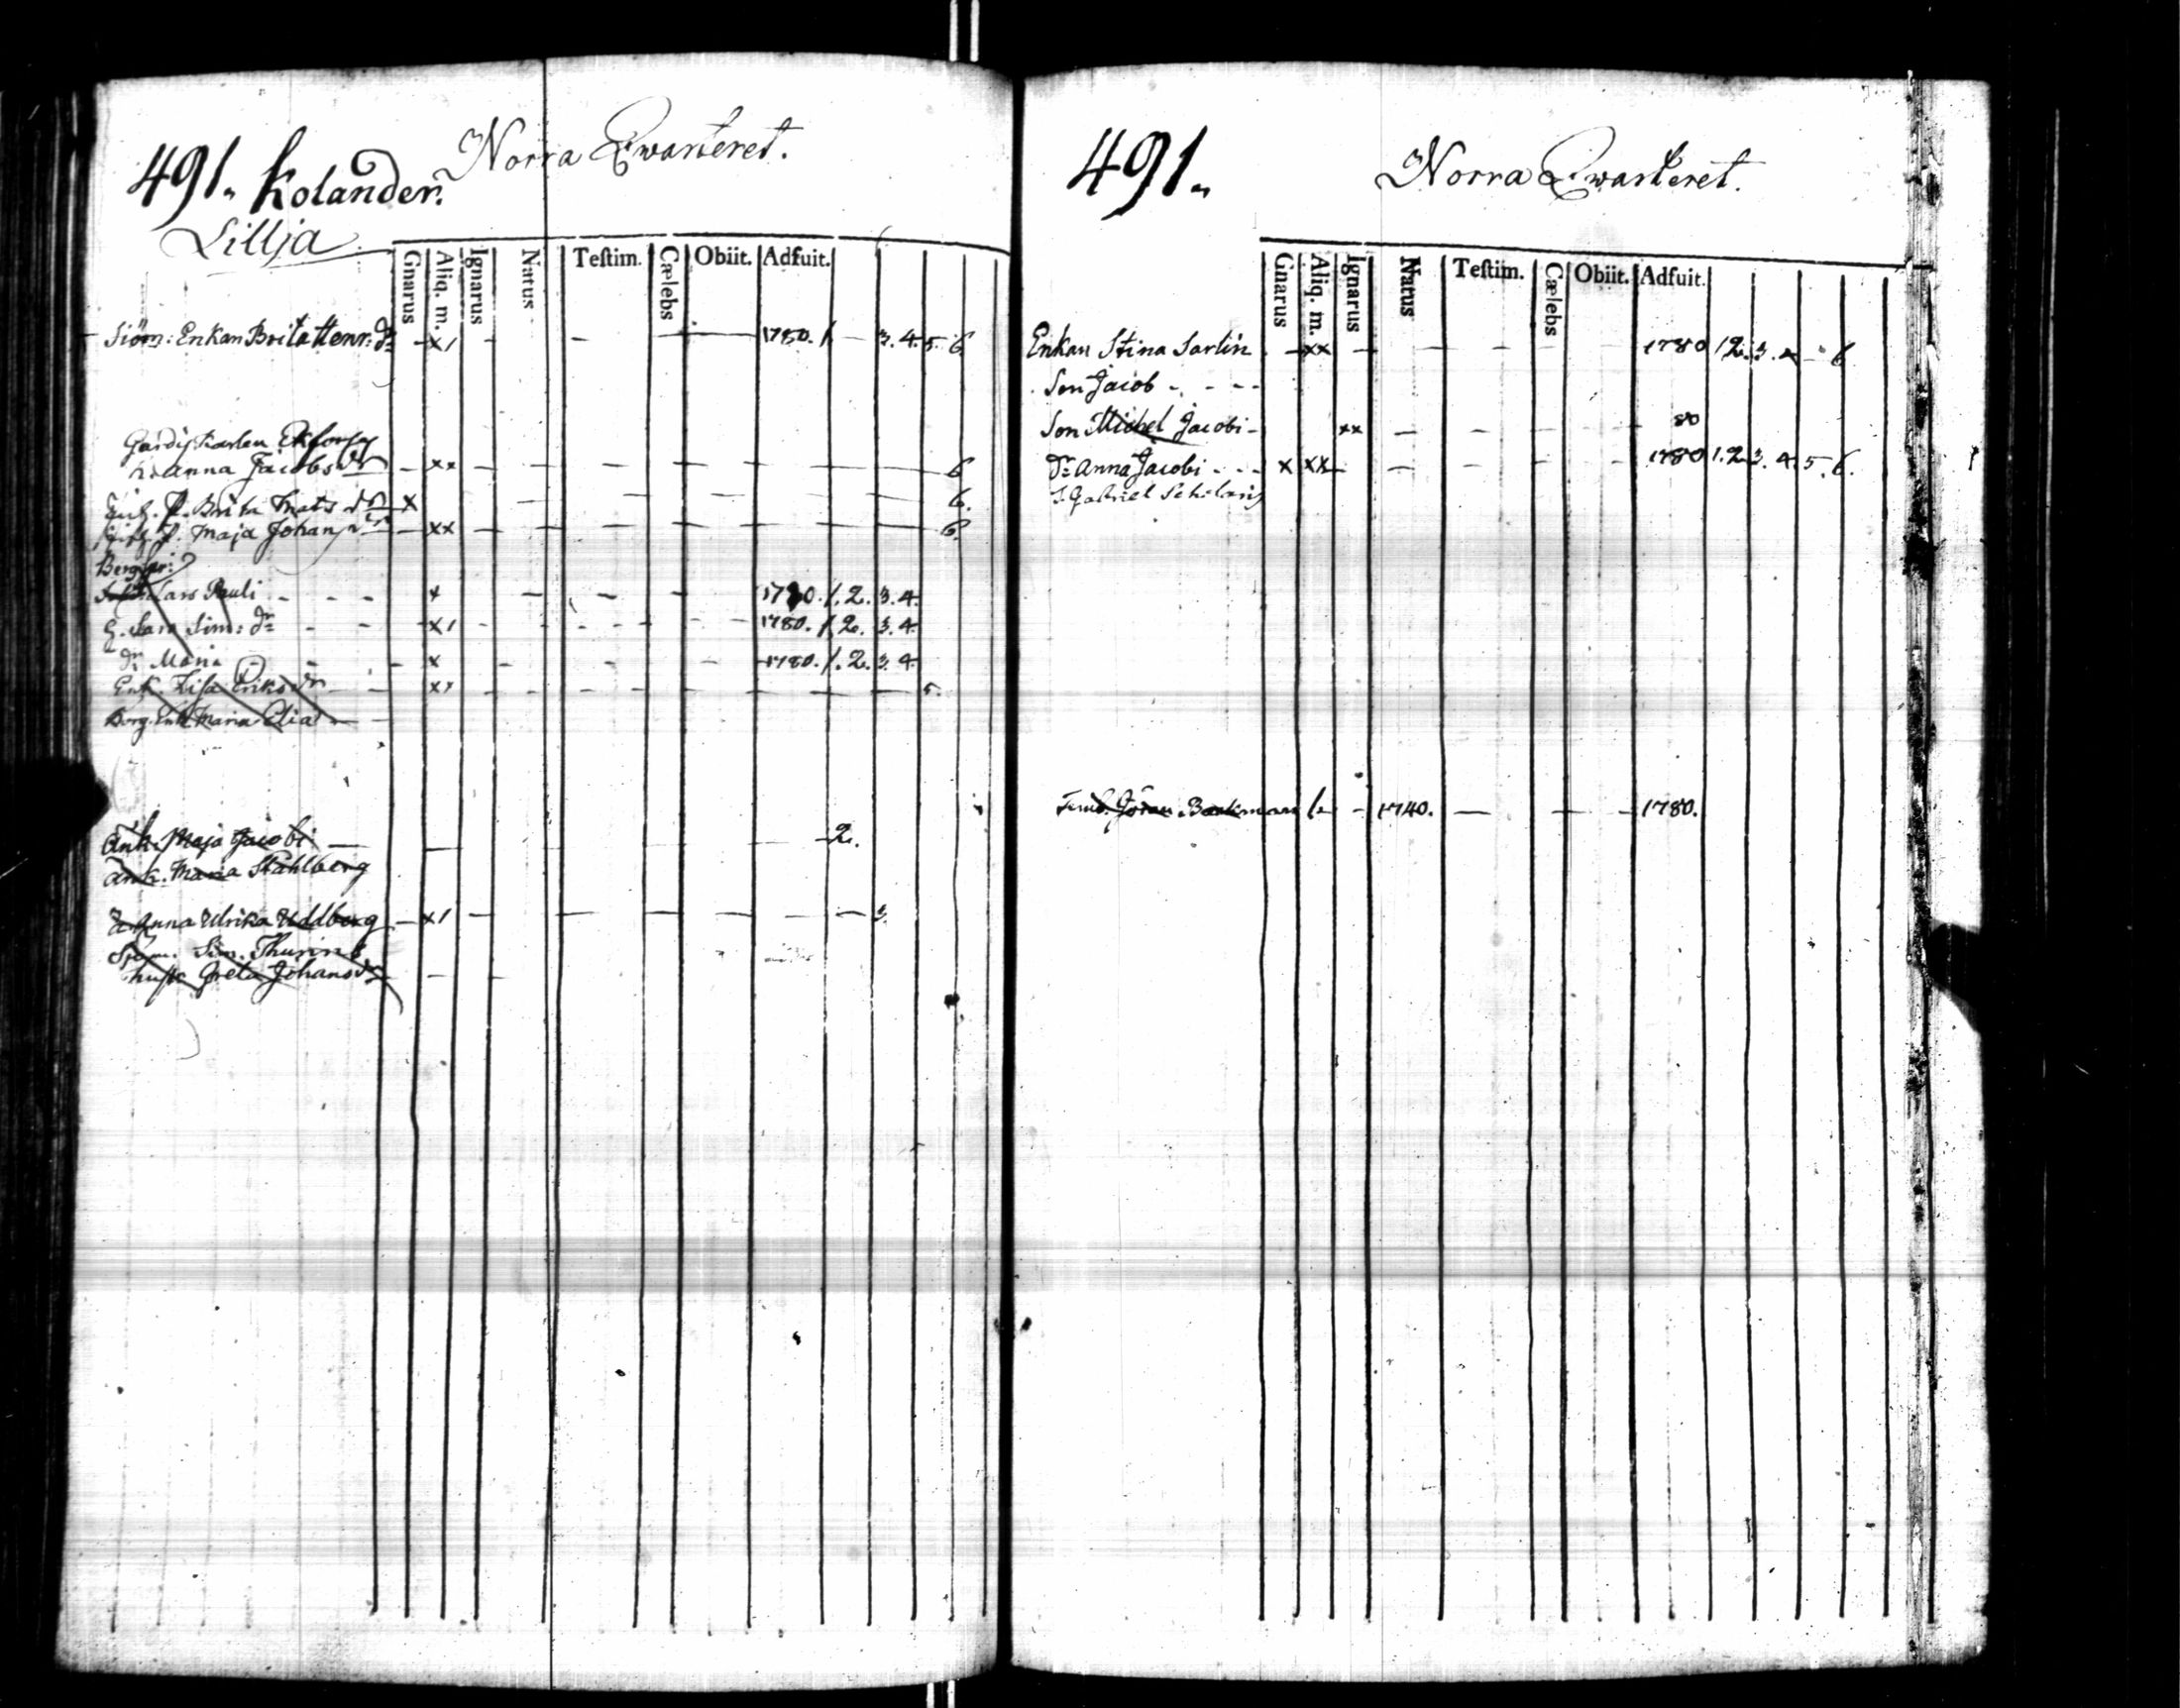 491. Kolander. Norra Qwarteret.
Lillja
Gnarus Aliq. m. Ignarus Natus Testim. Cælebs Obiit. Adfuit.
Siöm: Enkan Brita Henr: dr - x1 - - - 1780. 1 - 3. 4. 5. 6
Gårdiskarlen Ekfors
h. Anna Jacobsdr - xx - - - - - 6
Brita Mats dr x - - - - 6.
Maja Johans dr - xx - - - - - 6.
Berg
Lars Pauli - - - x - - - - 1780. 1. 2. 3. 4.
h. Sara Sim: dr - - - x1 - - - - - - 1780. 1. 2. 3. 4.
dr Maria - - - x - - - - - 1780. 1. 2. 3. 4.
Enk. Lisa Eriksdr - - xx - - - - - - - 5.
Borg. Enk Maria Elia
Änk. Maja Jacobi - - - - 2.
Änk. Maria Stahlberg
Anna Ulrika Uddberg - x1 - - - - - - 3.
Sjöm. Sim. Thurin
hust Greta Johansdr - -
491. Norra Qwarteret.
Gnarus Aliq. m. Ignarus Natus Testim. Cælebs Obiit. Adfuit.
Enkan Stina Sarlin - xx - - - - - 1780 1 2. 3. 4 - 6
Son Jacob - - - -
Son Michel Jacobi - xx - - - - - 80
Dr Anna Jacobi - - - x xx - - - - - 1780 1. 2 3. 4. 5. 6.
S. Gabriel
Göran Backman 1 - - 1740. - - - 1780.